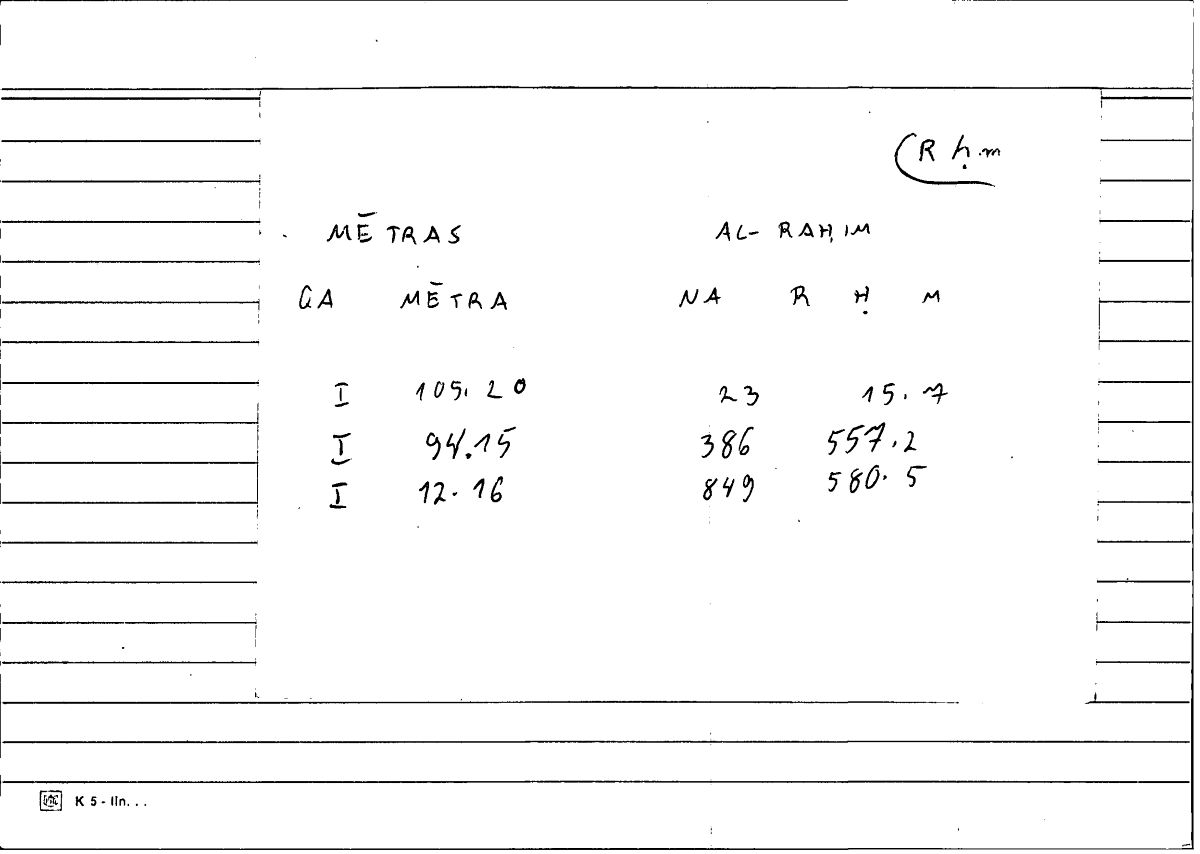 R ḥ.m
MĒTRAS AL-RAḤIM
GA MĒTRA NA R Ḥ M
I 105.20 23 15.7
I 94.15 386 557.2
I 12.16 849 580.5
K 5 - lin...